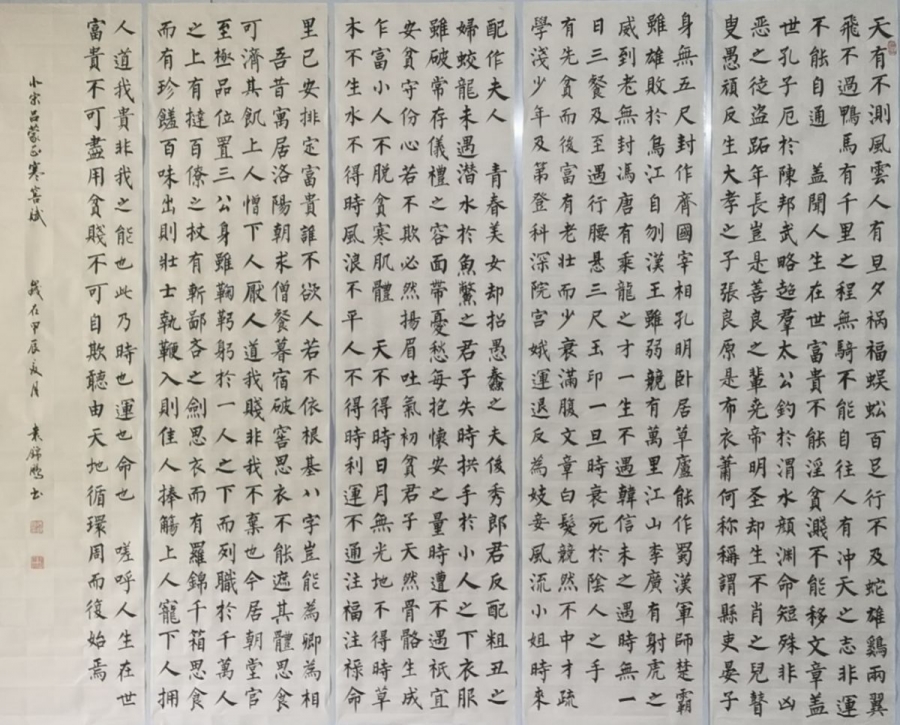 天有不測風雲人有旦夕祸福蜈蚣百足行不及蛇雄鷄兩翼
飛不過鴨馬有千里之程無騎不能自往人有冲天之志非運
不能自通 盖聞人生在世富貴不能淫貧濺不能移文章盖
世孔子厄於陳邦武略超羣太公釣於渭水顔渊命短殊非凶
恶之徒盗跖年長豈是善良之輩尭帝明圣却生不肖之兒瞽
叟愚頑反生大孝之子張良原是布衣蕭何称稱謂縣吏晏子
身無五尺封作齊國宰相孔明卧居草廬能作蜀漢軍師楚霸
雖雄敗於烏江自刎漢王雖弱競有萬里江山李廣有射虎之
威到老無封馮唐有乘龍之才一生不遇韓信未之遇時無一
日三餐及至遇行腰悬三尺玉印一旦時衰死於陰人之手
有先貧而後富有老壮而少衰滿腹文章白髮競然不中才疏
學淺少年及第登科深院宮娥運退反為妓妾風流小姐時來
配作夫人 青春美女却招愚蠢之夫後秀郎君反配粗丑之
婦蛟龍未遇潜水於魚鱉之君子失時拱手於小人之下衣服
雖破常存儀禮之容面帶憂愁每抱懷安之量時遭不遇祇宜
安貧守份心若不欺必然揚眉吐氣初貧君子天然骨骼生成
乍富小人不脱貧寒肌體 天不得時日月無光地不得時草
木不生水不得時風浪不平人不得時利運不通注福注禄命
里已安排定富貴誰不欲人若不依根基八字豈能為卿為相
吾昔寓居洛陽朝求僧餐暮宿破窖思衣不能遮其體思食
可濟其飢上人憎下人厭人道我賤非我不棄也今居朝堂官
至極品位置三公身雖鞠躬於一人之下而列職於千萬人
之上有撻百僚之杖有斬鄙吝之劍思衣而有羅錦千箱思食
而有珍饈百味出則壮士執鞭入則佳人捧觴上人寵下人拥
人道我貴非我之能也此乃時也運也命也 嗟呼人生在世
富貴不可盡用貧賤不可自欺聽由天地循環周而復始焉
小宋吕蒙正寒窖賦 歲在甲辰夏月 袁錦鵬书